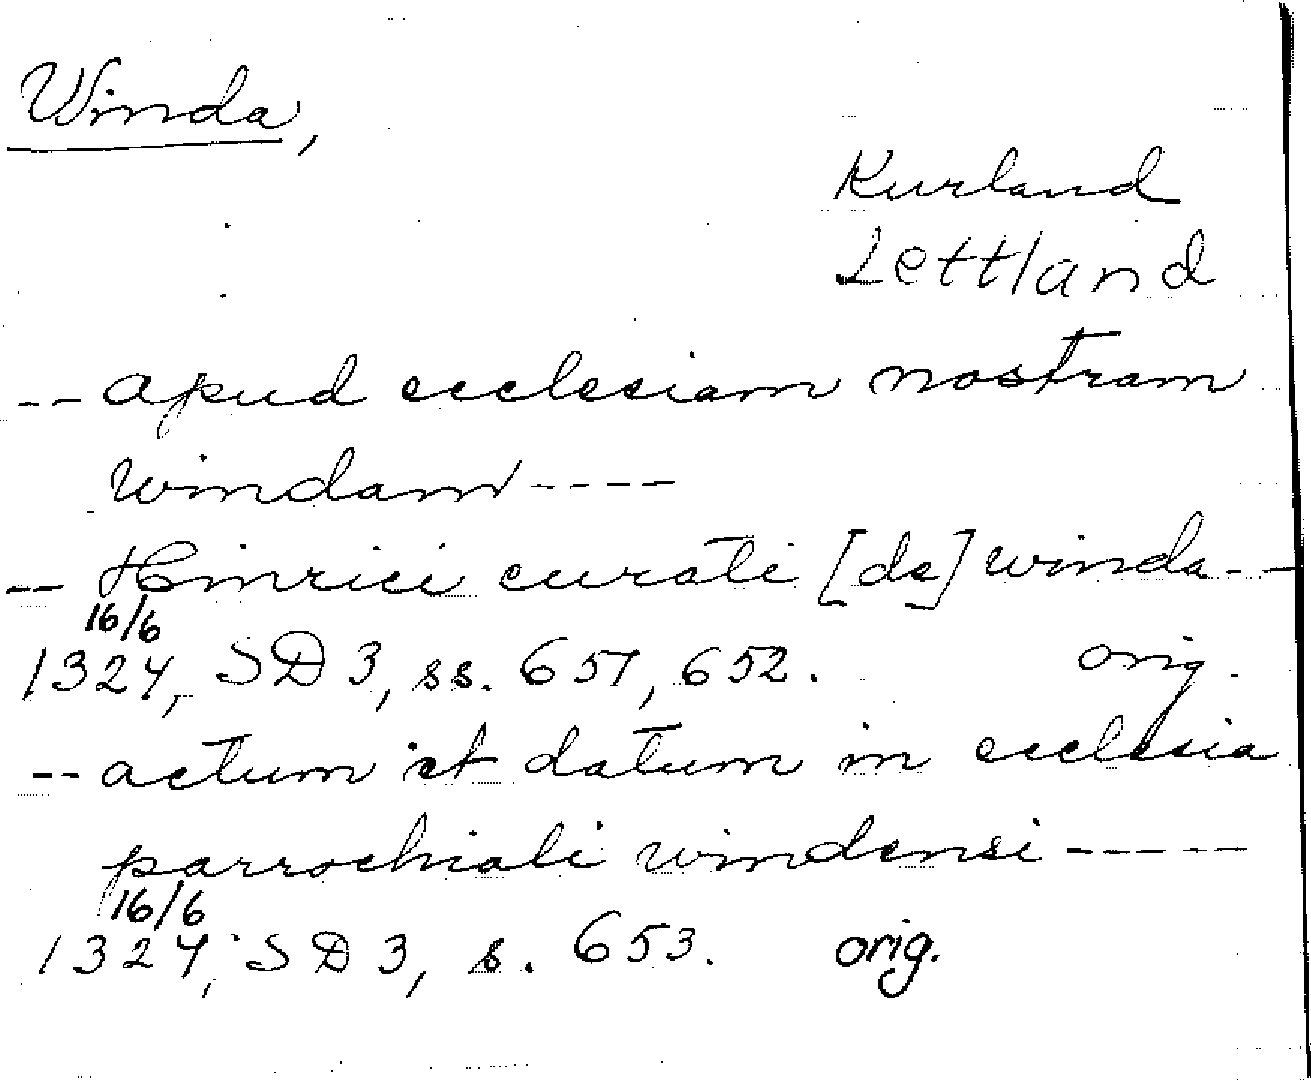 Winda,
Kurland
Lettland
-- apud ecclesiam nostram
windam ----
-- Hinrici curati [de] winda --
16/6
1324, SD 3, ss. 651, 652. orig.
-- actum et datum in ecclesia
parrochiali windensi -----
16/6
1324, SD 3, s. 653. orig.